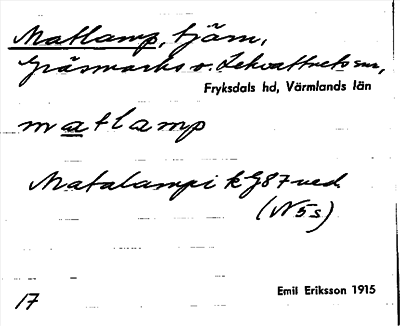 Matlamp, tjärn,
Gräsmarks o. Lekvattnets snr,
Fryksdals hd, Värmlands län
matlamp
Matalampi k G87 ved
(N 5 s)
Emil Eriksson 1915
17